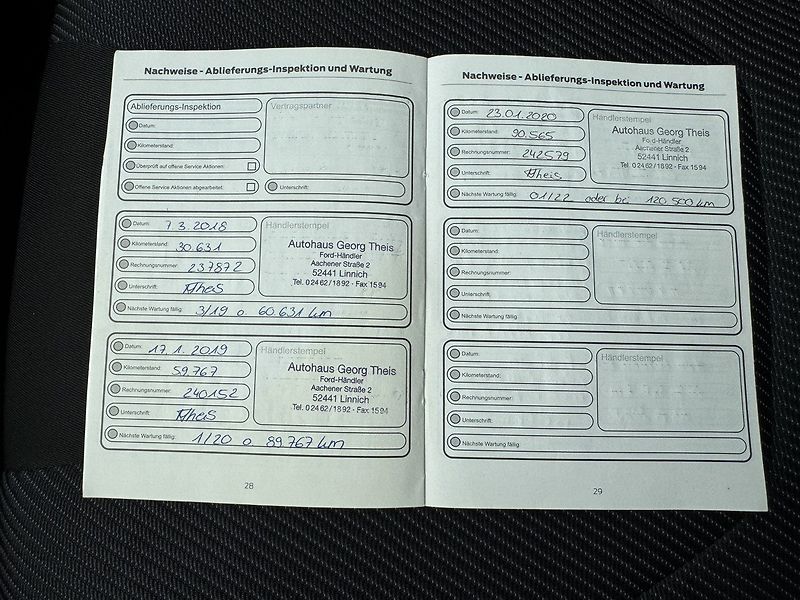 Nachweise - Ablieferungs-Inspektion und Wartung
Ablieferungs-Inspektion
Datum:
Kilometerstand:
Überprüft auf offene Service Aktionen:
Offene Service Aktionen abgearbeitet:
Vertragspartner
Unterschrift:
Datum: 7.3.2018
Kilometerstand: 30.631
Rechnungsnummer: 237872
Unterschrift: Theis
Händlerstempel
Autohaus Georg Theis
Ford-Händler
Aachener Straße 2
52441 Linnich
Tel. 0 24 62 / 18 92 · Fax 15 94
Nächste Wartung fällig: 3/19 o. 60.631 km
Datum: 17.1.2019
Kilometerstand: 59.767
Rechnungsnummer: 240152
Unterschrift: Theis
Händlerstempel
Autohaus Georg Theis
Ford-Händler
Aachener Straße 2
52441 Linnich
Tel. 0 24 62 / 18 92 · Fax 15 94
Nächste Wartung fällig: 1/20 o 89.767 km
28
Nachweise - Ablieferungs-Inspektion und Wartung
Datum: 23.01.2020
Kilometerstand: 90.565
Rechnungsnummer: 242579
Unterschrift: Theis
Händlerstempel
Autohaus Georg Theis
Ford-Händler
Aachener Straße 2
52441 Linnich
Tel. 0 24 62 / 18 92 · Fax 15 94
Nächste Wartung fällig: 01/22 oder bei 120.500 km
Datum:
Kilometerstand:
Rechnungsnummer:
Unterschrift:
Händlerstempel
Nächste Wartung fällig:
Datum:
Kilometerstand:
Rechnungsnummer:
Unterschrift:
Händlerstempel
Nächste Wartung fällig:
29